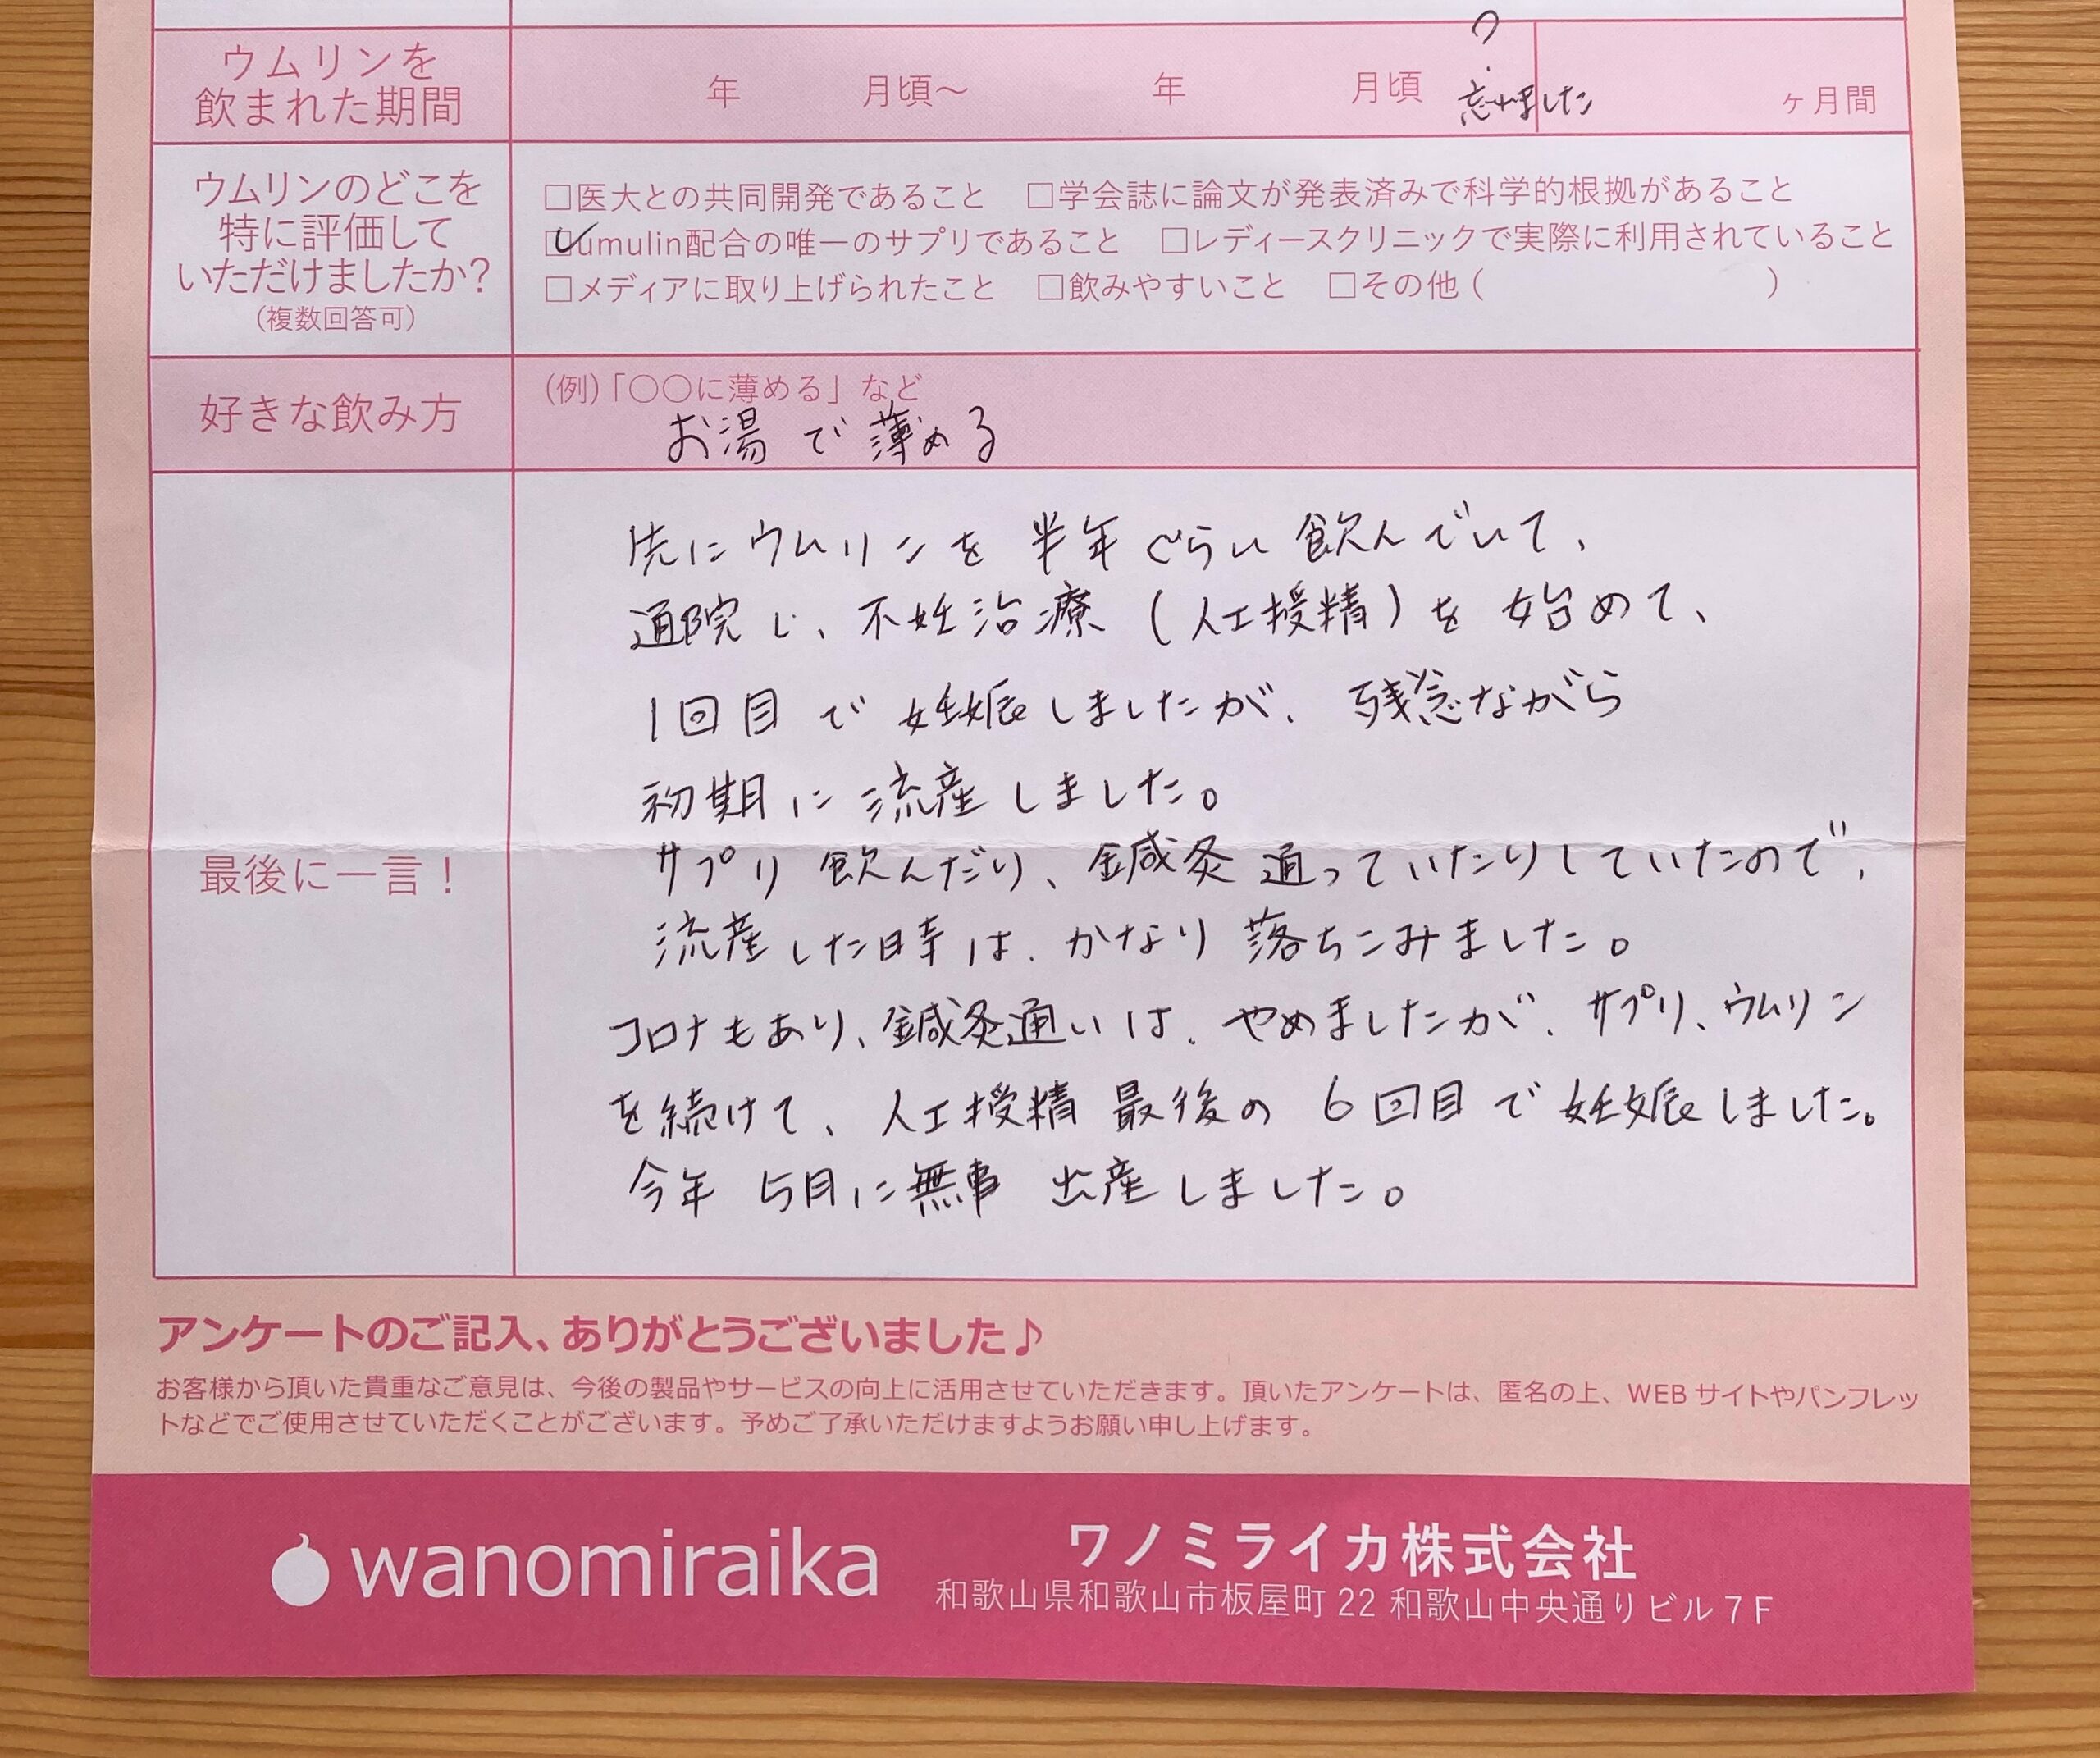 ウムリンを
飲まれた期間
年 月頃〜 年 月頃 ? 忘れました ヶ月間
ウムリンのどこを
特に評価して
いただけましたか?
(複数回答可)
□医大との共同開発であること □学会誌に論文が発表済みで科学的根拠があること
☑umulin配合の唯一のサプリであること □レディースクリニックで実際に利用されていること
□メディアに取り上げられたこと □飲みやすいこと □その他( )
好きな飲み方
(例)「〇〇に薄める」など
お湯で薄める
最後に一言!
先にウムリンを半年ぐらい飲んでいて、
通院し、不妊治療(人工授精)を始めて、
1回目で妊娠しましたが、残念ながら
初期に流産しました。
サプリ飲んだり、鍼灸通っていたりしていたので、
流産した時は、かなり落ちこみました。
コロナもあり、鍼灸通いは、やめましたが、サプリ、ウムリン
を続けて、人工授精最後の6回目で妊娠しました。
今年5月に無事出産しました。
アンケートのご記入、ありがとうございました♪
お客様から頂いた貴重なご意見は、今後の製品やサービスの向上に活用させていただきます。頂いたアンケートは、匿名の上、WEBサイトやパンフレッ
トなどでご使用させていただくことがございます。予めご了承いただけますようお願い申し上げます。
wanomiraika
ワノミライカ株式会社
和歌山県和歌山市板屋町22 和歌山中央通りビル7F